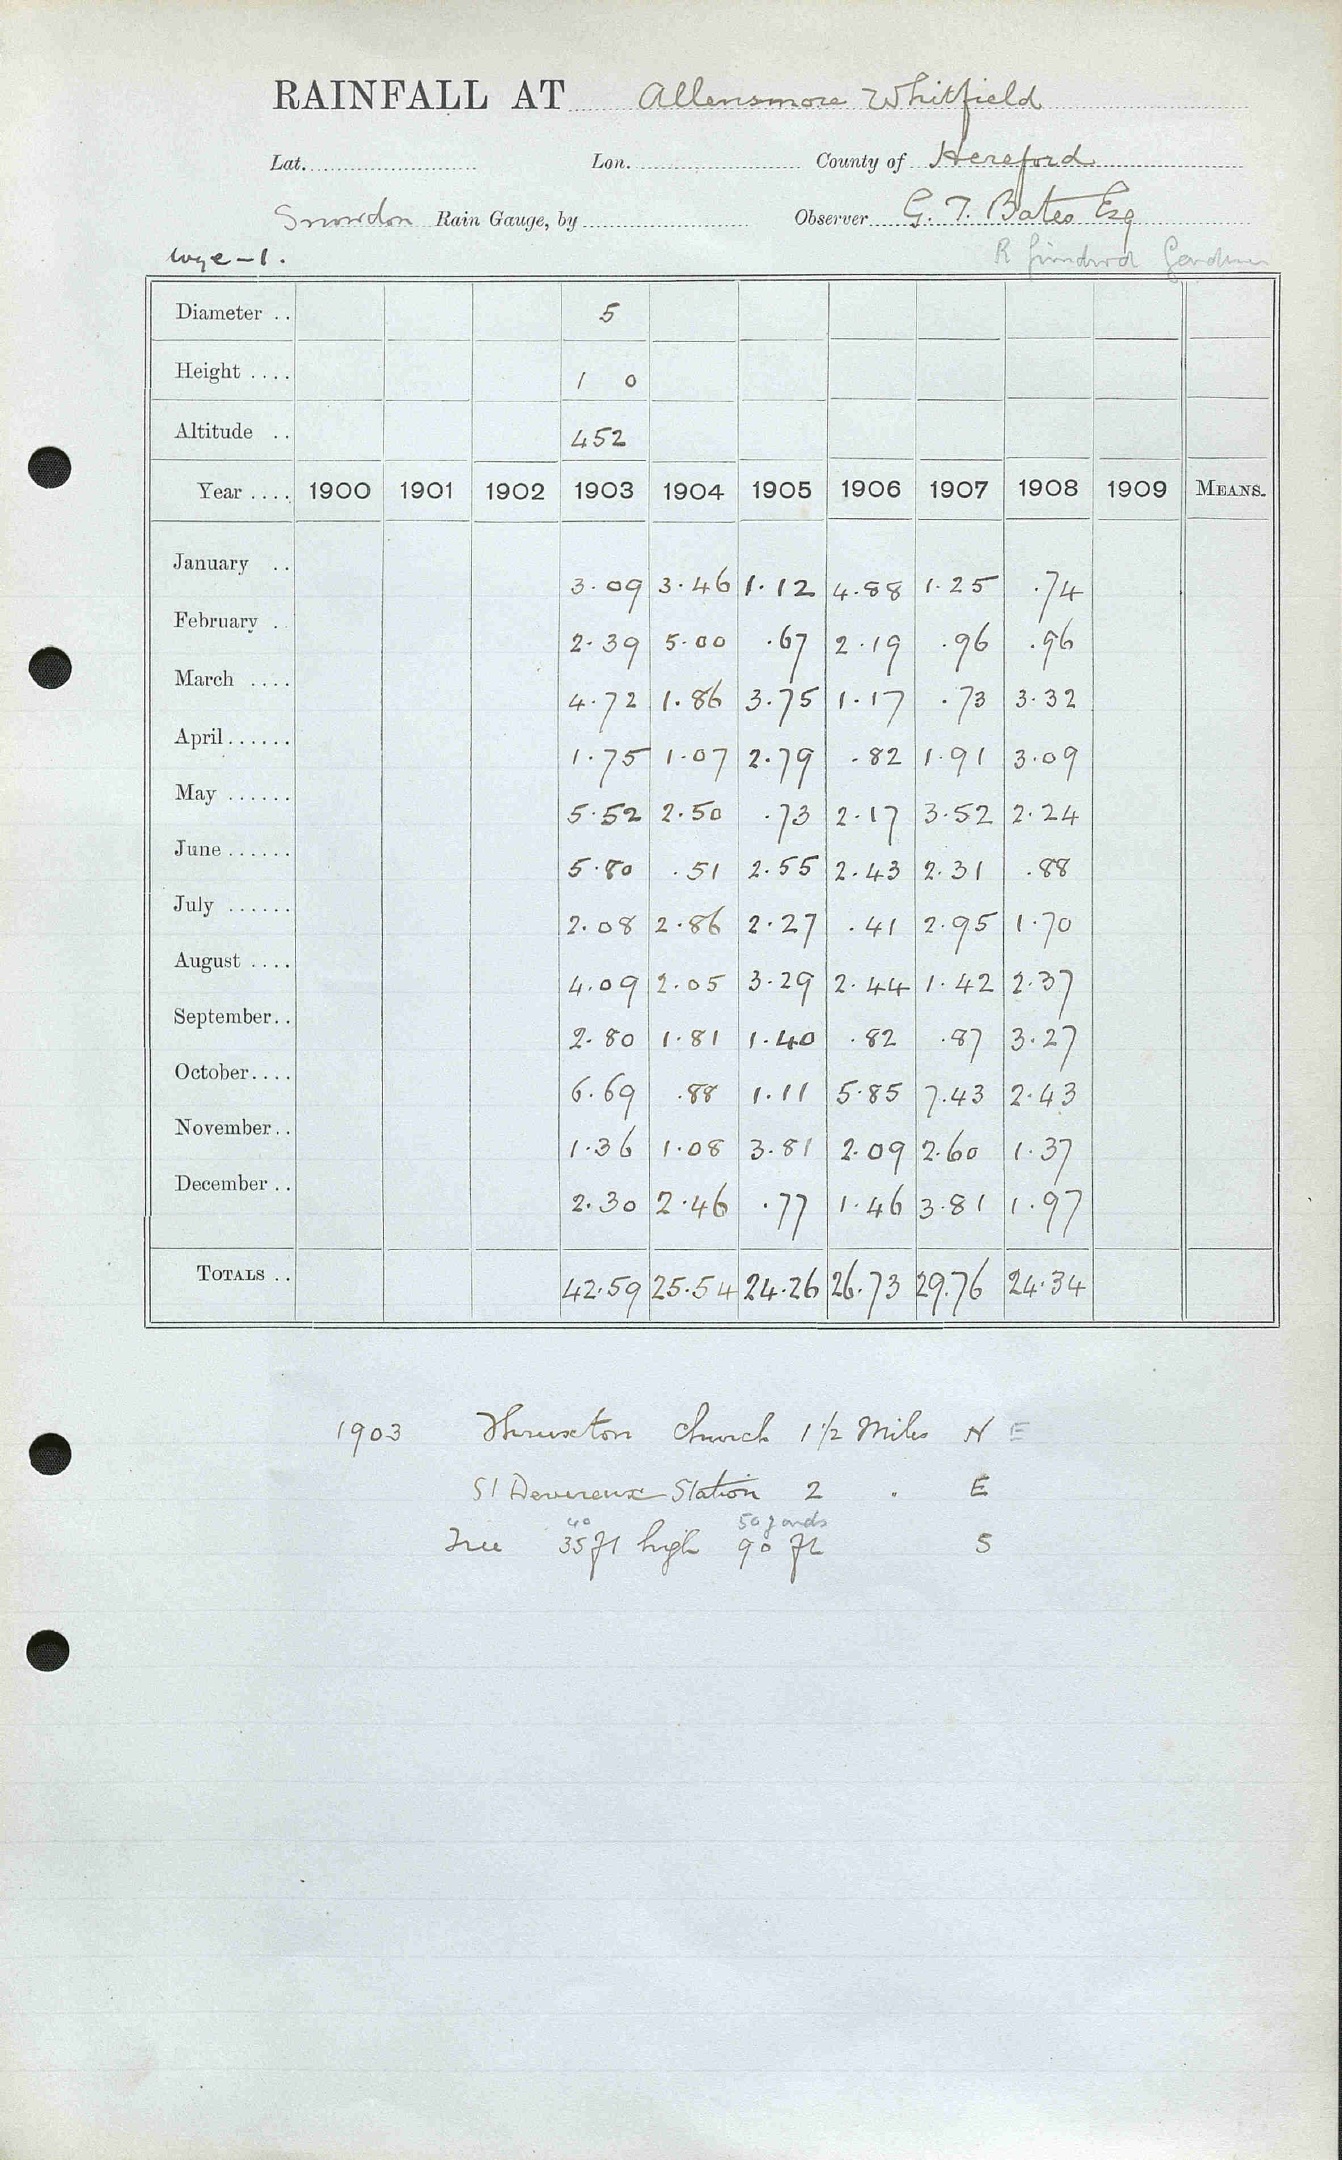 RAINFALL AT Allensmore Whitfield
Lat. Lon. County of Hereford
Snowdon Rain Gauge, by Observer G. T. Bates Esq
Wye-1. R Gardener
Diameter .. 5
Height .... 1 0
Altitude .. 452
Year .... 1900 1901 1902 1903 1904 1905 1906 1907 1908 1909 MEANS.
January .. 3.09 3.46 1.12 4.88 1.25 .74
February . 2.39 5.00 .67 2.19 .96 .96
March .... 4.72 1.86 3.75 1.17 .73 3.32
April...... 1.75 1.07 2.79 .82 1.91 3.09
May ...... 5.52 2.50 .73 2.17 3.52 2.24
June ...... 5.80 .51 2.55 2.43 2.31 .88
July ...... 2.08 2.86 2.27 .41 2.95 1.70
August .... 4.09 2.05 3.29 2.44 1.42 2.37
September.. 2.80 1.81 1.40 .82 .87 3.27
October.... 6.69 .88 1.11 5.85 7.43 2.43
November.. 1.36 1.08 3.81 2.09 2.60 1.37
December .. 2.30 2.46 .77 1.46 3.81 1.97
TOTALS .. 42.59 25.54 24.26 26.73 29.76 24.34
1903 Thruxton Church 1½ Miles N E
St Devereux Station 2 . E
40 50 yards
Tree 35 ft high 90 ft S